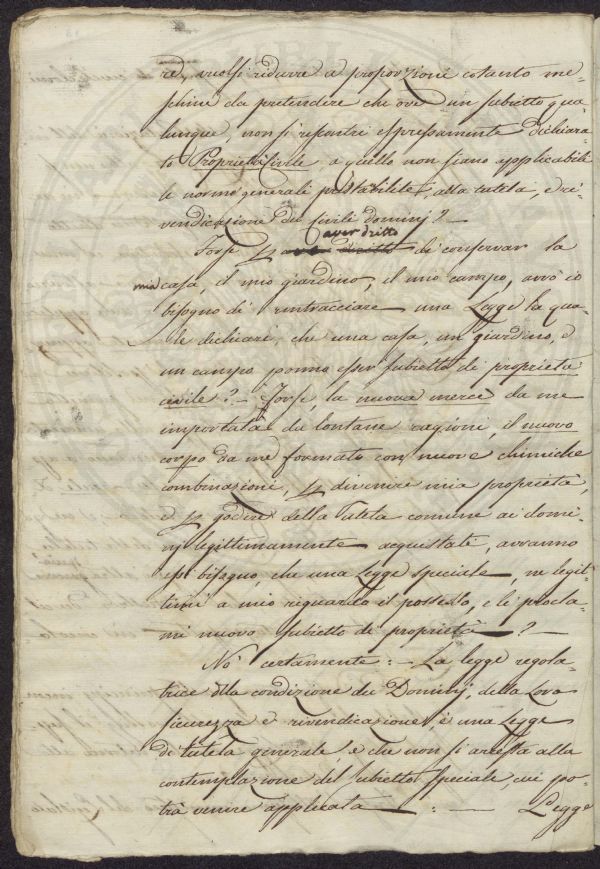 re, vuolsi ridurre a proporzioni cotanto me-
schine da pretendere che ove un subietto qua-
lunque, non si riscontri espressamente dichiara-
to Proprietà Civile a quello non siano applicabili
le norme generali prestabilite, alla tutela, e ri-
vendicazione dei Civili Dominj? —
aver dritto
Forse p di conservar la
mia casa, il mio giardino, il mio campo, avrò io
bisogno di rintracciare una Legge la qua-
le dichiari, che una casa, un giardino, e
un campo ponno esser subietto di proprietà
civile? — Forse, la nuova merce da me
importata da lontane ragioni, il nuovo
corpo da me formato con nuove chimiche
combinazioni, p divenire mia proprietà,
e p godere della Tutela comune ai domi-
nj legittimamente acquistate, avranno
essi bisogno, che una Legge speciale, ne legit-
timi a mio riguardo il possesso, e le procla-
mi nuovo subietto di proprietà —? —
No certamente: — La legge regola-
trice della condizione dei Dominj, della Loro
sicurezza e rivendicazione, è una Legge
di tutela generale, e che non si arresta alla
contemplazione del subietto speciale, cui po-
trà venire applicata —: — Legge